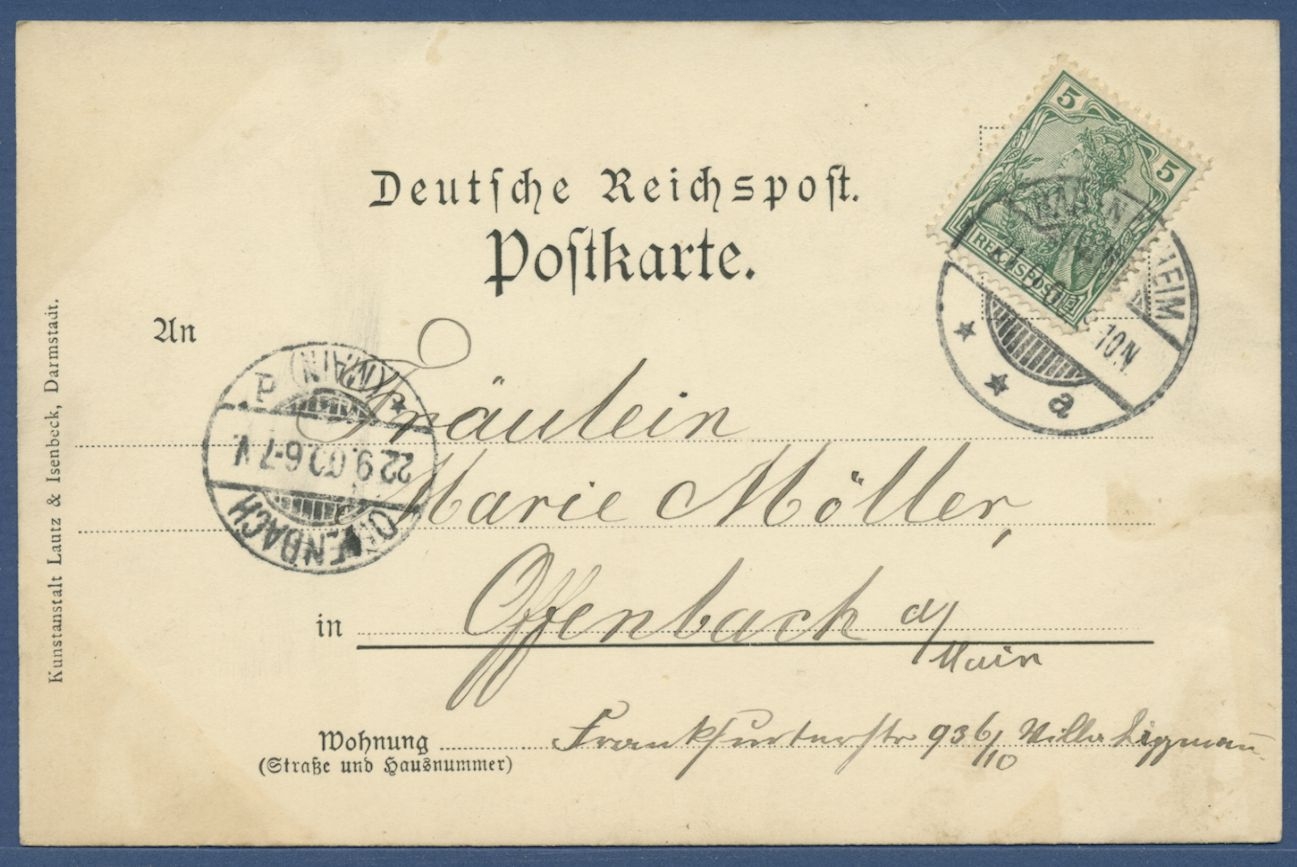 Deutsche Reichspost.
Postkarte.
5 5
REICHSPOST
HEIM
10.N.
a
An
(MAIN) P.
22.9.00.6-7.V.
OFFENBACH
Fräulein
Marie Möller,
in Offenbach a/
Main
Wohnung Frankfurterstr 936/10 Villa
(Straße und Hausnummer)
Kunstanstalt Lautz & Isenbeck, Darmstadt.